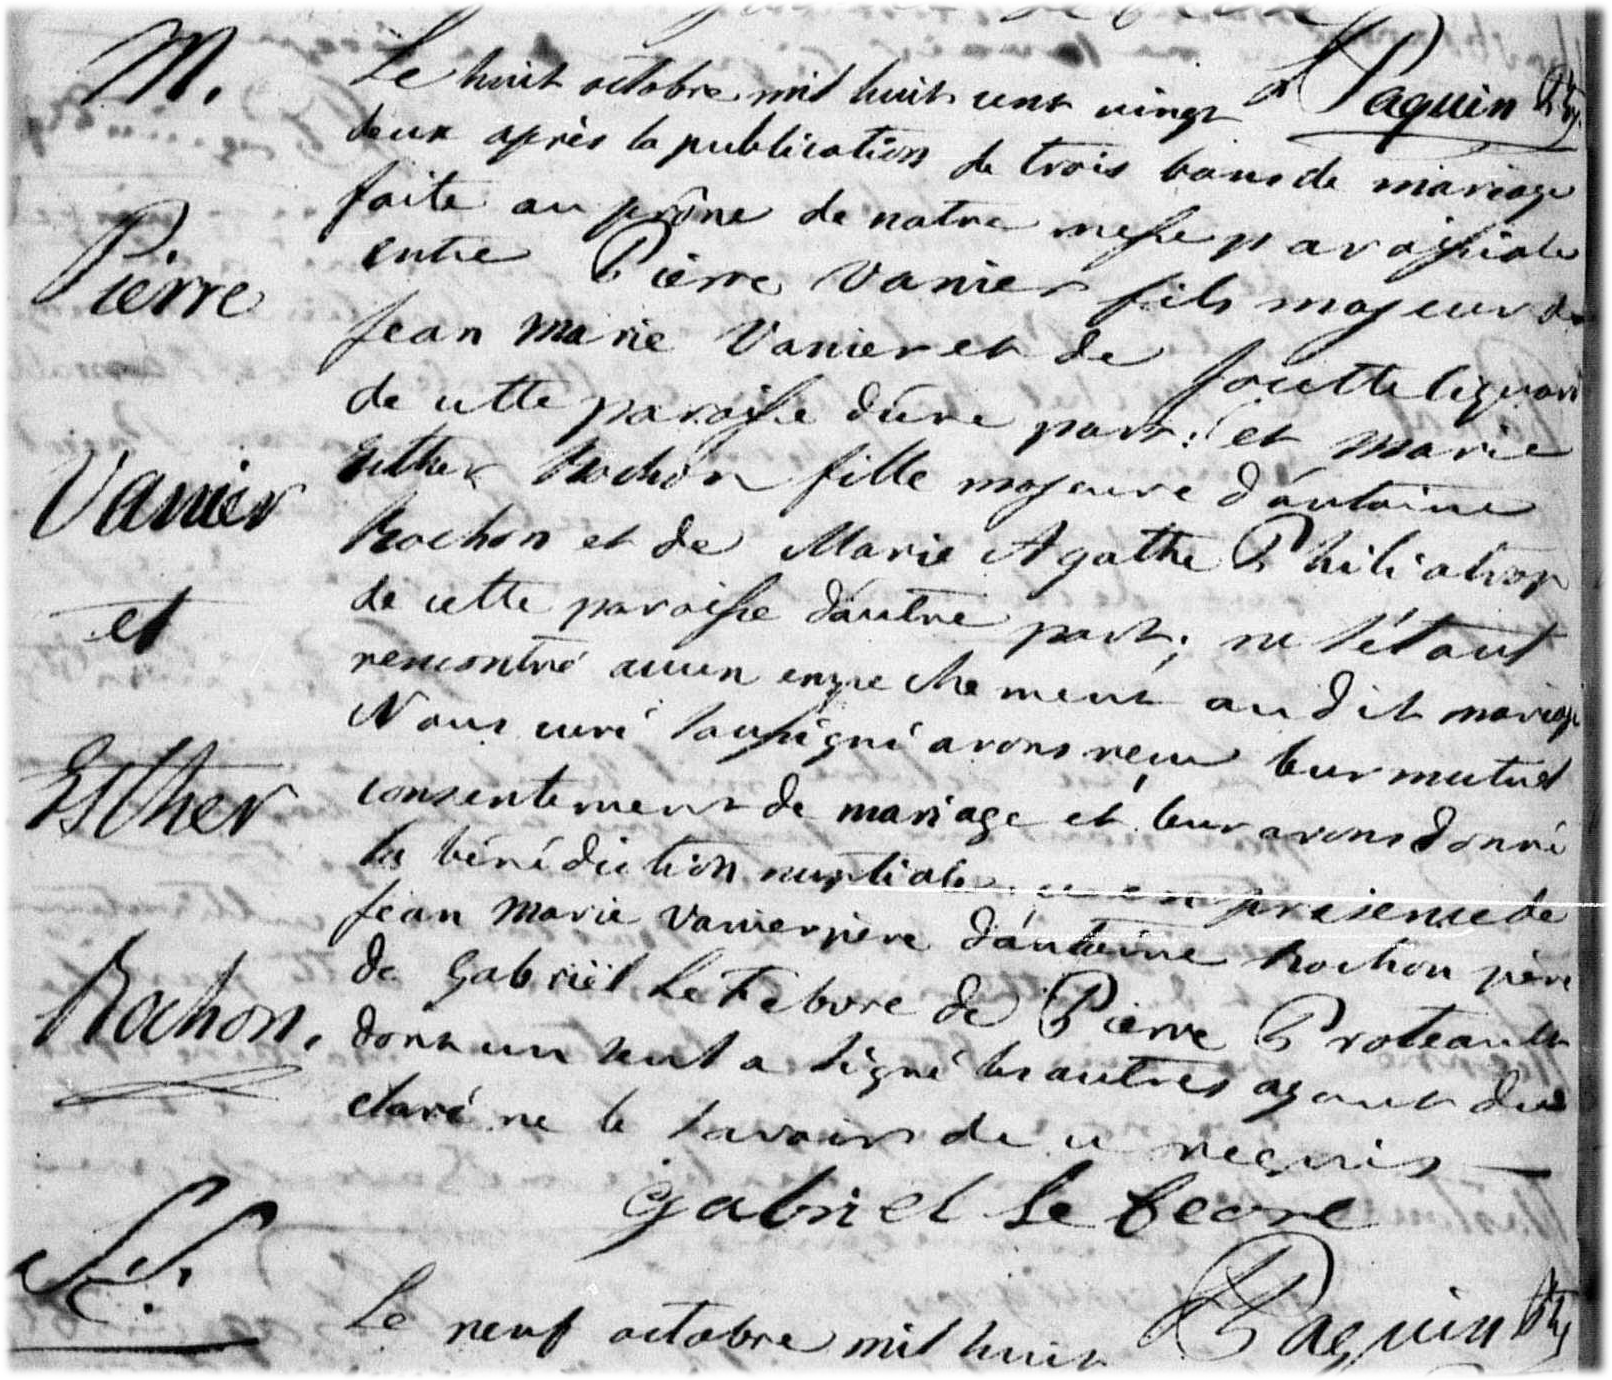 M.
Paquin Ptre
Le huit octobre mil huit cent vingt
deux après la publication de trois bans de mariage
faite au prône de notre messe paroissiale
entre Pierre Vanier fils majeur de
Jean Marie Vanier et de Josette
de cette paroisse d'une part; et Marie
Esther Rochon fille majeure d'antoine
Rochon et de Marie Agathe Philiatrop
de cette paroisse d'autre part; ne s'étant
rencontré aucun empechement au dit mariage
Nous curé soussigné avons reçu leur mutuel
consentement de mariage et leur avons donné
la bénédiction nuptiale en présence de
Jean Marie Vanier père d'antoine Rochon père
de Gabriël Le Febvre de Pierre Proteault
dont un seul a signé les autres ayant dé
claré ne le savoir de ce requis
Gabriel Le febvre
Paquin Ptre
Le neuf octobre mil huit
Pierre
Vanier
et
Esther
Rochon.
S.